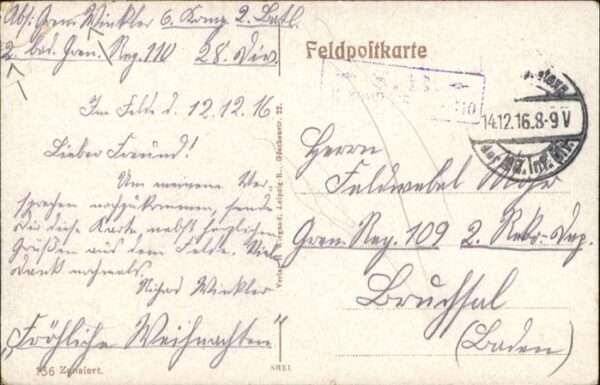 Abs: Gren. Winkler 6. Komp. 2. Batl.
2. bad. Gren. Reg. 110 28. Div.
Im Felde d. 12.12.16
Lieber Freund!
Um meinem Ver
sprechen nachzukommen, sende
Dir diese Karte nebst herzlichen
Grüßen aus dem Felde. Viel
Dank nochmals.
Winkler
"Fröhliche Weihnachten"
156 Zensiert.
SHEL
Feldpostkarte
110
14.12.16.8-9V
Herrn
Feldwebel
Gren. Reg. 109 2. Rekr. Dep.
Bruchsal
(Baden)